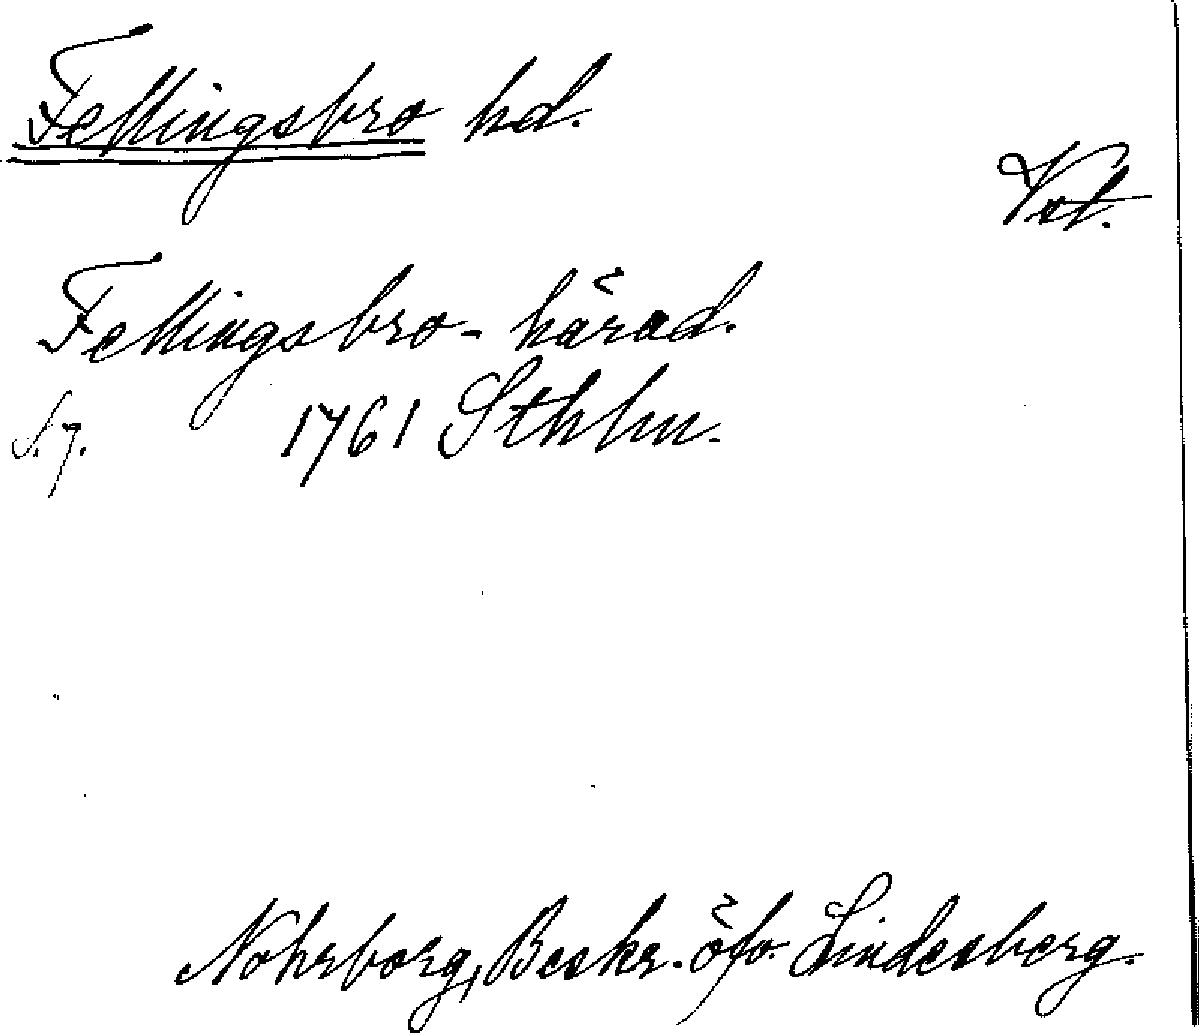 Fellingsbro hd.
Vst.
Fellingsbro-härad.
S. 7. 1761 Sthlm.
Nohrborg, Beskr. öfv. Lindesberg.